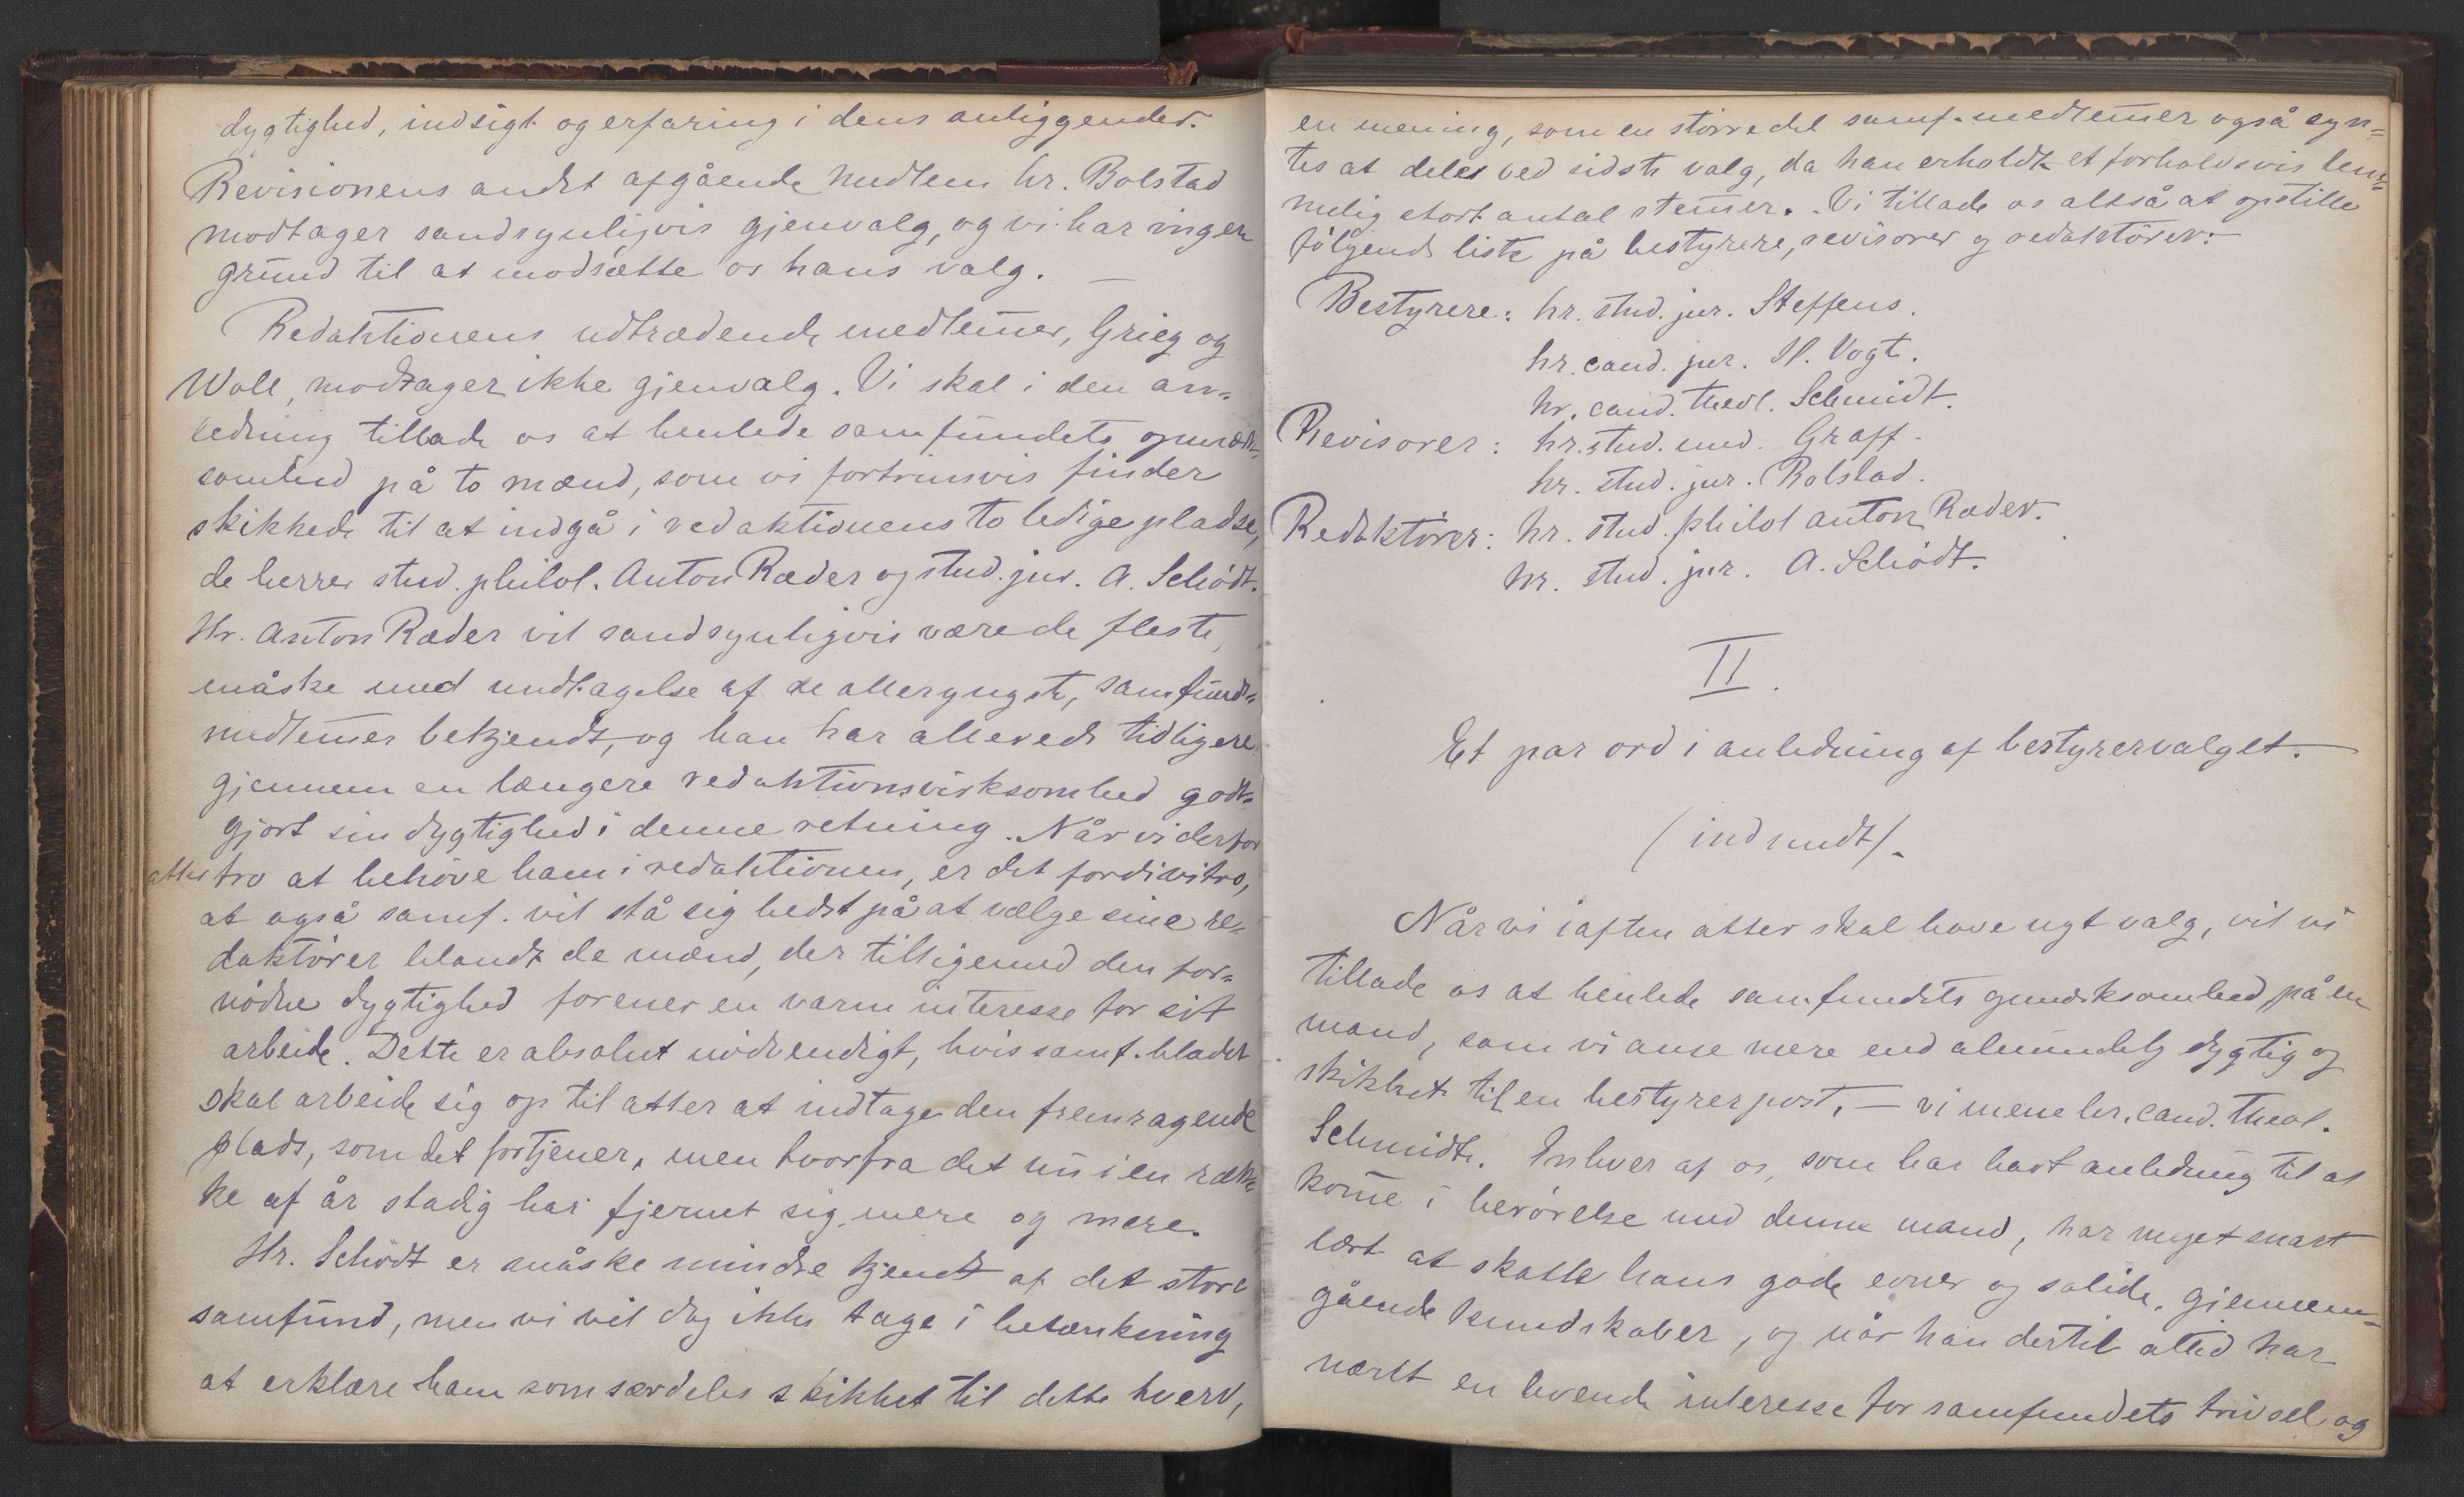 dygtighed, indsigt og erfaring i dens anliggender.
Revisionens andet afgående medlem hr. Bolstad
modtager sandsynligvis gjenvalg, og vi har ingen
grund til at modsætte os hans valg. —
Redaktionens udtrædende medlem̄er, Grieg og
Woll, modtager ikke gjenvalg. Vi skal i den an-
ledning tillade os at henlede samfundets opmærk-
somhed på to mænd, som vi fortrinsvis finder
skikkede til at indgå i redaktionens to ledige pladse,
de herrer stud. philol. Anton Ræder og stud. jur. A. Schödt.
Hr. Anton Ræder vil sandsynligvis være de fleste,
måske med undtagelse af de alleryngste, samfunds-
medlem̄er bekjendt, og han har allerede tidligere
gjennem en længere redaktionsvirksomhed godt-
gjort sin dygtighed i denne retning. Når vi derfor
atter tro at behöve ham i redaktionen, er det fordi vi tro,
at også samf. vil stå sig bedst på at vælge sine re-
daktörer blandt de mænd, der tilligemed den for-
nödne dygtighed forener en varm interesse for sit
arbeide. Dette er absolut nödvendigt, hvis samf. bladet
skal arbeide sig op til atter at indtage den fremragende
plads, som det fortjener, men hvorfra det nu i en ræk-
ke af år stadig har fjernet sig mere og mere.
Hr. Schödt er måske mindre kjendt af det store
samfund, men vi vil dog ikke tage i betænkning
at erklære ham som særdeles skikket til dette hverv,
en mening, som en större del samf.medlem̄er også syn-
tes at deles ved sidste valg, da han erholdt et forholdsvis tem-
melig stort antal stem̄er. Vi tillade os altså at opstille
fölgende liste på bestyrere, revisorer og redaktörer:
Bestyrere: hr. stud. jur. Steffens.
hr. cand. jur. H. Vogt.
hr. cand. theol. Schmidt.
Revisorer: hr. stud. med. Graff.
hr. stud. jur. Bolstad.
Redaktörer: hr. stud. philol Anton Ræder.
hr. stud. jur. A. Schödt.
II.
Et par ord i anledning af bestyrervalget.
(indsendt).
Når vi iaften atter skal have nyt valg, vil vi
tillade os at henlede samfundets opmerksomhed på en
mand, som vi anse mere end almindelig dygtig og
skikket til en bestyrerpost, — vi mene hr. cand. theol.
Schmidt. Enhver af os, som har havt anledning til at
kom̄e i berörelse med denne mand, har meget snart
lært at skatte hans gode evner og solide, gjennem-
gående kundskaber, og når han dertil altid har
næret en levende interesse for samfundets trivsel og